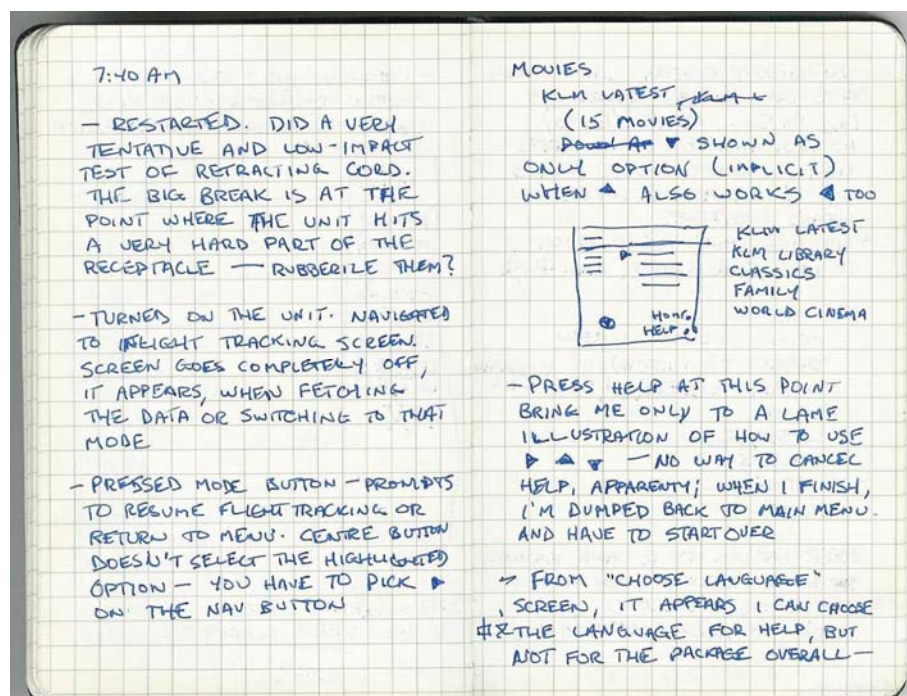 7:40 AM
— RESTARTED. DID A VERY
TENTATIVE AND LOW-IMPACT
TEST OF RETRACTING CORD.
THE BIG BREAK IS AT THE
POINT WHERE THE UNIT HITS
A VERY HARD PART OF THE
RECEPTACLE — RUBBERIZE THEM?
— TURNED ON THE UNIT. NAVIGATED
TO INFLIGHT TRACKING SCREEN.
SCREEN GOES COMPLETELY OFF,
IT APPEARS, WHEN FETCHING
THE DATA OR SWITCHING TO THAT
MODE
— PRESSED MODE BUTTON — PROMPTS
TO RESUME FLIGHT TRACKING OR
RETURN TO MENU. CENTRE BUTTON
DOESN'T SELECT THE HIGHLIGHTED
OPTION — YOU HAVE TO PICK ▶
ON THE NAV BUTTON
MOVIES
KLM LATEST
(15 MOVIES)
▼ SHOWN AS
ONLY OPTION (IMPLICIT)
WHEN ▲ ALSO WORKS ◀ TOO
KLM LATEST
KLM LIBRARY
CLASSICS
FAMILY
WORLD CINEMA
HELP
— PRESS HELP AT THIS POINT
BRING ME ONLY TO A LAME
ILLUSTRATION OF HOW TO USE
▶ ▲ ▼ — NO WAY TO CANCEL
HELP, APPARENTY; WHEN I FINISH,
I'M DUMPED BACK TO MAIN MENU.
AND HAVE TO START OVER
FROM "CHOOSE LANGUAGE"
SCREEN, IT APPEARS I CAN CHOOSE
THE LANGUAGE FOR HELP, BUT
NOT FOR THE PACKAGE OVERALL —